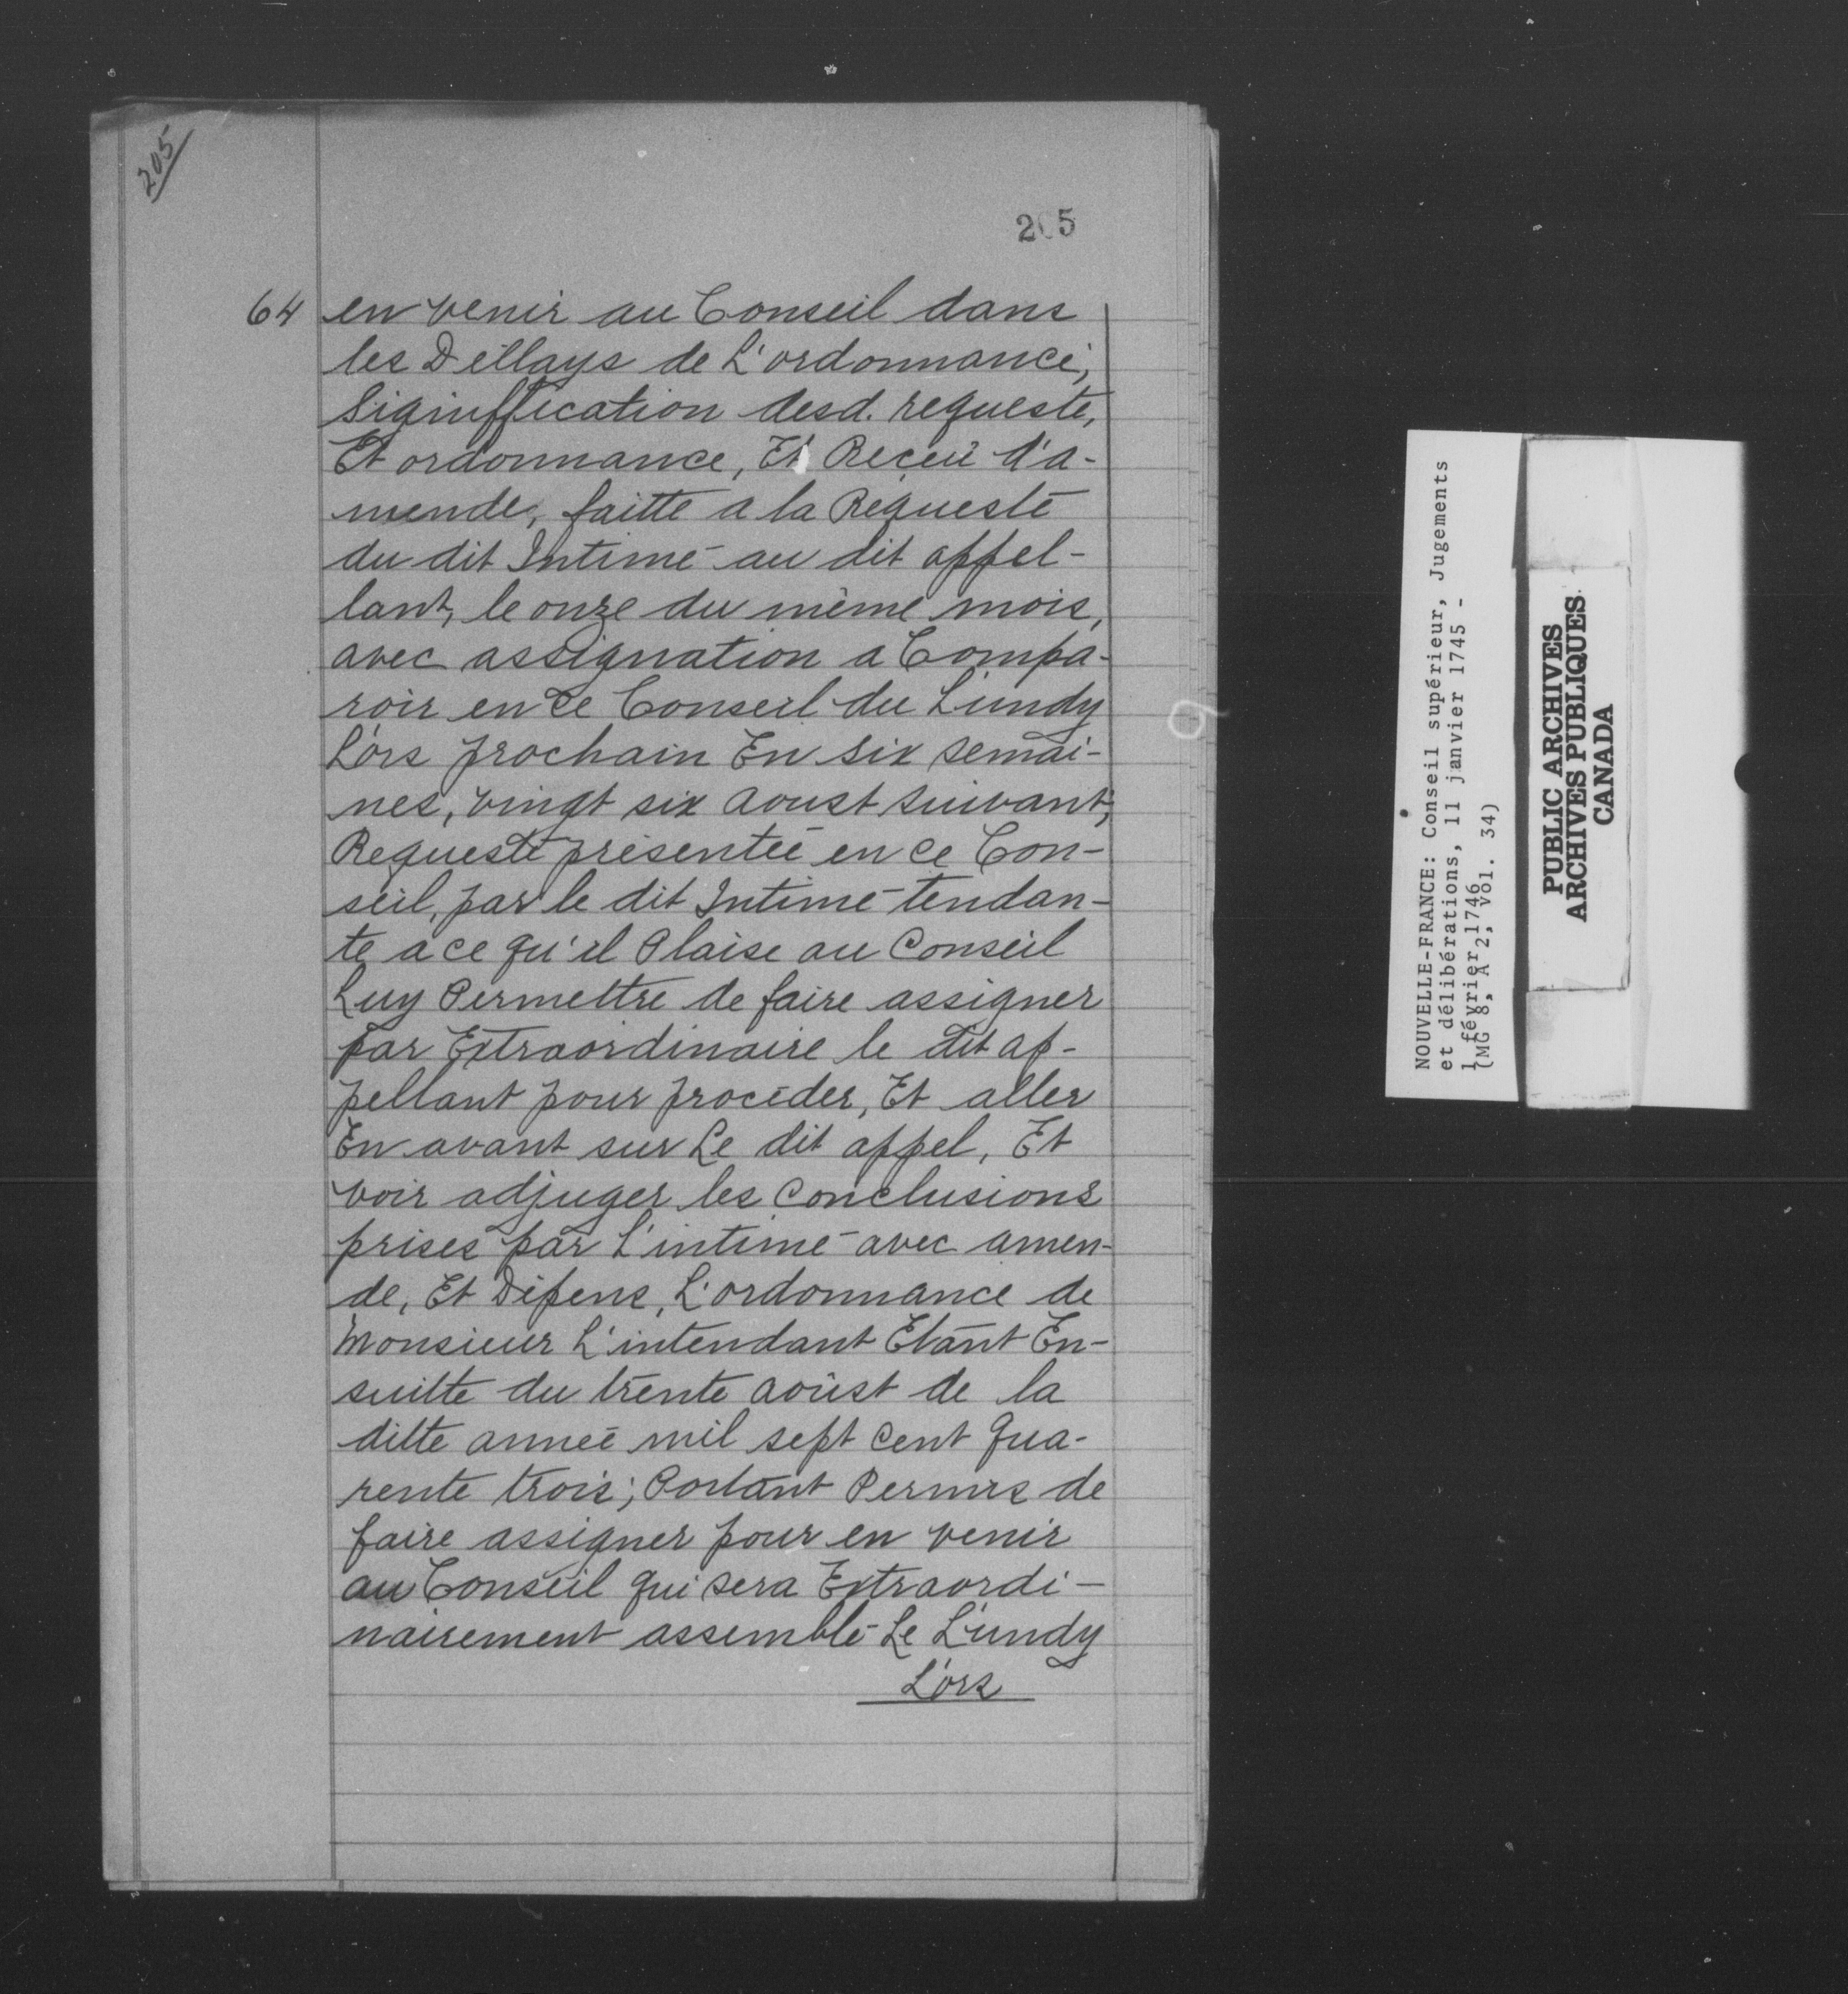 205
205
64 en venir au Conseil dans
les Déllays de L'ordonnance,
Signiffication desd. requeste,
Et ordonnance, Et Reçeu d'a-
mende, faitte a la Requeste
du dit Intimé au dit appel-
lant, le onze du même mois,
avec assignation a Compa-
roir en ce Conseil du Lundy
Lors prochain En six semai-
nes, vingt six aoust suivant;
Requeste présentée en ce Con-
seil, par le dit Intimé tendan-
te a ce qu'il Plaise au Conseil
Luy Permettre de faire assigner
par Extraordinaire le dit ap-
pellant pour procéder, Et aller
En avant sur Le dit appel, Et
voir adjuger les Conclusions
prises par L'intimé avec amen-
de, Et Dépens, L'ordonnance de
Monsieur L'intendant Etant En-
suitte du trente aoust de la
ditte année mil sept Cent qua-
rente trois; Portant Permis de
faire assigner pour en venir
au Conseil qui sera Extraordi-
nairement assemblé Le Lundy
Lors
NOUVELLE-FRANCE: Conseil supérieur, Jugements
et délibérations, 11 janvier 1745 -
1 février 1746
(MG 8, A 2, vol. 34)
PUBLIC ARCHIVES
ARCHIVES PUBLIQUES
CANADA